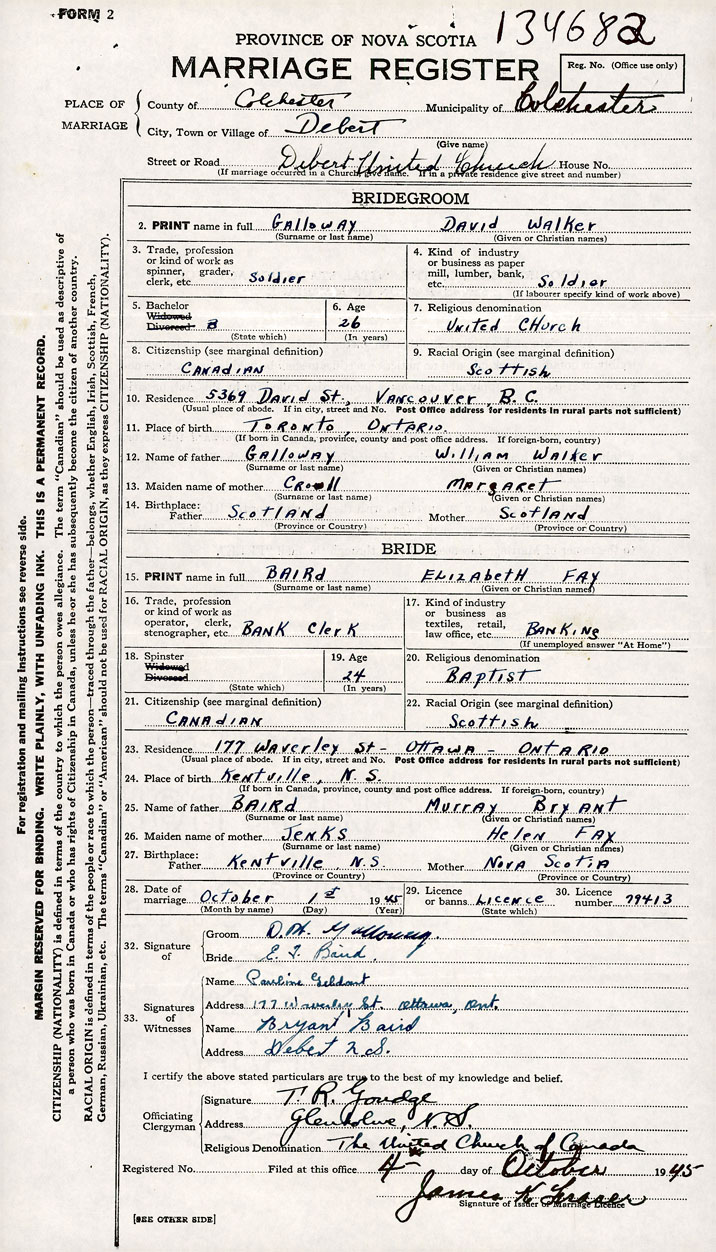 FORM 2
134682
PROVINCE OF NOVA SCOTIA
MARRIAGE REGISTER
Reg. No. (Office use only)
PLACE OF MARRIAGE
County of Colchester Municipality of Colchester
City, Town or Village of Debert
(Give name)
Street or Road Debert United Church House No.
(If marriage occurred in a Church give name. If in a private residence give street and number)
BRIDEGROOM
2. PRINT name in full Galloway David Walker
(Surname or last name) (Given or Christian names)
3. Trade, profession or kind of work as spinner, grader, clerk, etc. Soldier
4. Kind of industry or business as paper mill, lumber, bank, etc. Soldier
(If labourer specify kind of work above)
5. Bachelor Widowed Divorced B
(State which)
6. Age 26
(In years)
7. Religious denomination
United Church
8. Citizenship (see marginal definition)
Canadian
9. Racial Origin (see marginal definition)
Scottish
10. Residence 5369 David St., Vancouver, B.C.
(Usual place of abode. If in city, street and No. Post Office address for residents in rural parts not sufficient)
11. Place of birth Toronto, Ontario.
(If born in Canada, province, county and post office address. If foreign-born, country)
12. Name of father Galloway William Walker
(Surname or last name) (Given or Christian names)
13. Maiden name of mother Margaret
(Surname or last name) (Given or Christian names)
14. Birthplace: Father Scotland Mother Scotland
(Province or Country) (Province or Country)
BRIDE
15. PRINT name in full BAIRD ELIZABETH FAY
(Surname or last name) (Given or Christian names)
16. Trade, profession or kind of work as operator, clerk, stenographer, etc. BANK Clerk
17. Kind of industry or business as textiles, retail, law office, etc. BANKING
(If unemployed answer "At Home")
18. Spinster Widowed Divorced
(State which)
19. Age 24
(In years)
20. Religious denomination
Baptist
21. Citizenship (see marginal definition)
CANADIAN
22. Racial Origin (see marginal definition)
Scottish
23. Residence 177 Waverley St - OTTAWA - ONTARIO
(Usual place of abode. If in city, street and No. Post Office address for residents in rural parts not sufficient)
24. Place of birth Kentville, N.S.
(If born in Canada, province, county and post office address. If foreign-born, country)
25. Name of father BAIRD Murray Bryant
(Surname or last name) (Given or Christian names)
26. Maiden name of mother JENKS Helen Fay
(Surname or last name) (Given or Christian names)
27. Birthplace: Father Kentville N.S. Mother Nova Scotia
(Province or Country) (Province or Country)
28. Date of marriage October 1st 1945
(Month by name) (Day) (Year)
29. Licence or banns Licence
(State which)
30. Licence number 79413
32. Signature of
Groom D.W. Galloway.
Bride E. F. Baird.
33. Signatures of Witnesses
Name Pauline Geldart
Address 177 Waverley St. Ottawa, Ont.
Name Bryant Baird
Address Debert N.S.
I certify the above stated particulars are true to the best of my knowledge and belief.
Officiating Clergyman
Signature T. R. Goudge
Address Glenholme, N.S.
Religious Denomination The United Church of Canada
Registered No. Filed at this office 4 day of October 1945
James K Fraser
Signature of Issuer of Marriage Licence
[SEE OTHER SIDE]
For registration and mailing instructions see reverse side.
MARGIN RESERVED FOR BINDING. WRITE PLAINLY, WITH UNFADING INK. THIS IS A PERMANENT RECORD.
CITIZENSHIP (NATIONALITY) is defined in terms of the country to which the person owes allegiance. The term "Canadian" should be used as descriptive of
a person who was born in Canada or who has rights of Citizenship in Canada, unless he or she has subsequently become the citizen of another country.
RACIAL ORIGIN is defined in terms of the people or race to which the person—traced through the father—belongs, whether English, Irish, Scottish, French,
German, Russian, Ukrainian, etc. The terms "Canadian" or "American" should not be used for RACIAL ORIGIN, as they express CITIZENSHIP (NATIONALITY).